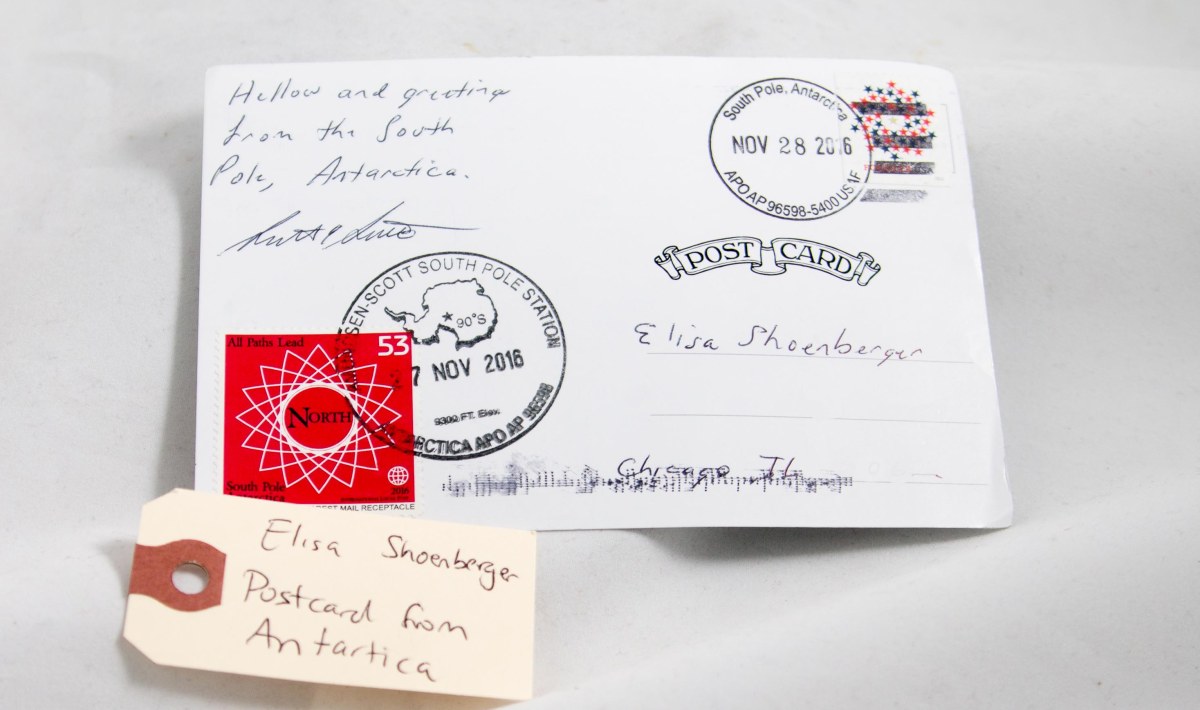 Hellow and greeting
from the South
Pole, Antarctica.
South Pole, Antarctica
NOV 28 2016
APO AP 96598-5400 US
POST CARD
SEN-SCOTT SOUTH POLE STATION
90°S
7 NOV 2016
9300 FT. Elev.
ANTARCTICA APO AP 96598
All Paths Lead
53
NORTH
South Pole
2016
EST MAIL RECEPTACLE
Elisa Shoenberger
Chicago IL
Elisa Shoenberger
Postcard from
Antartica